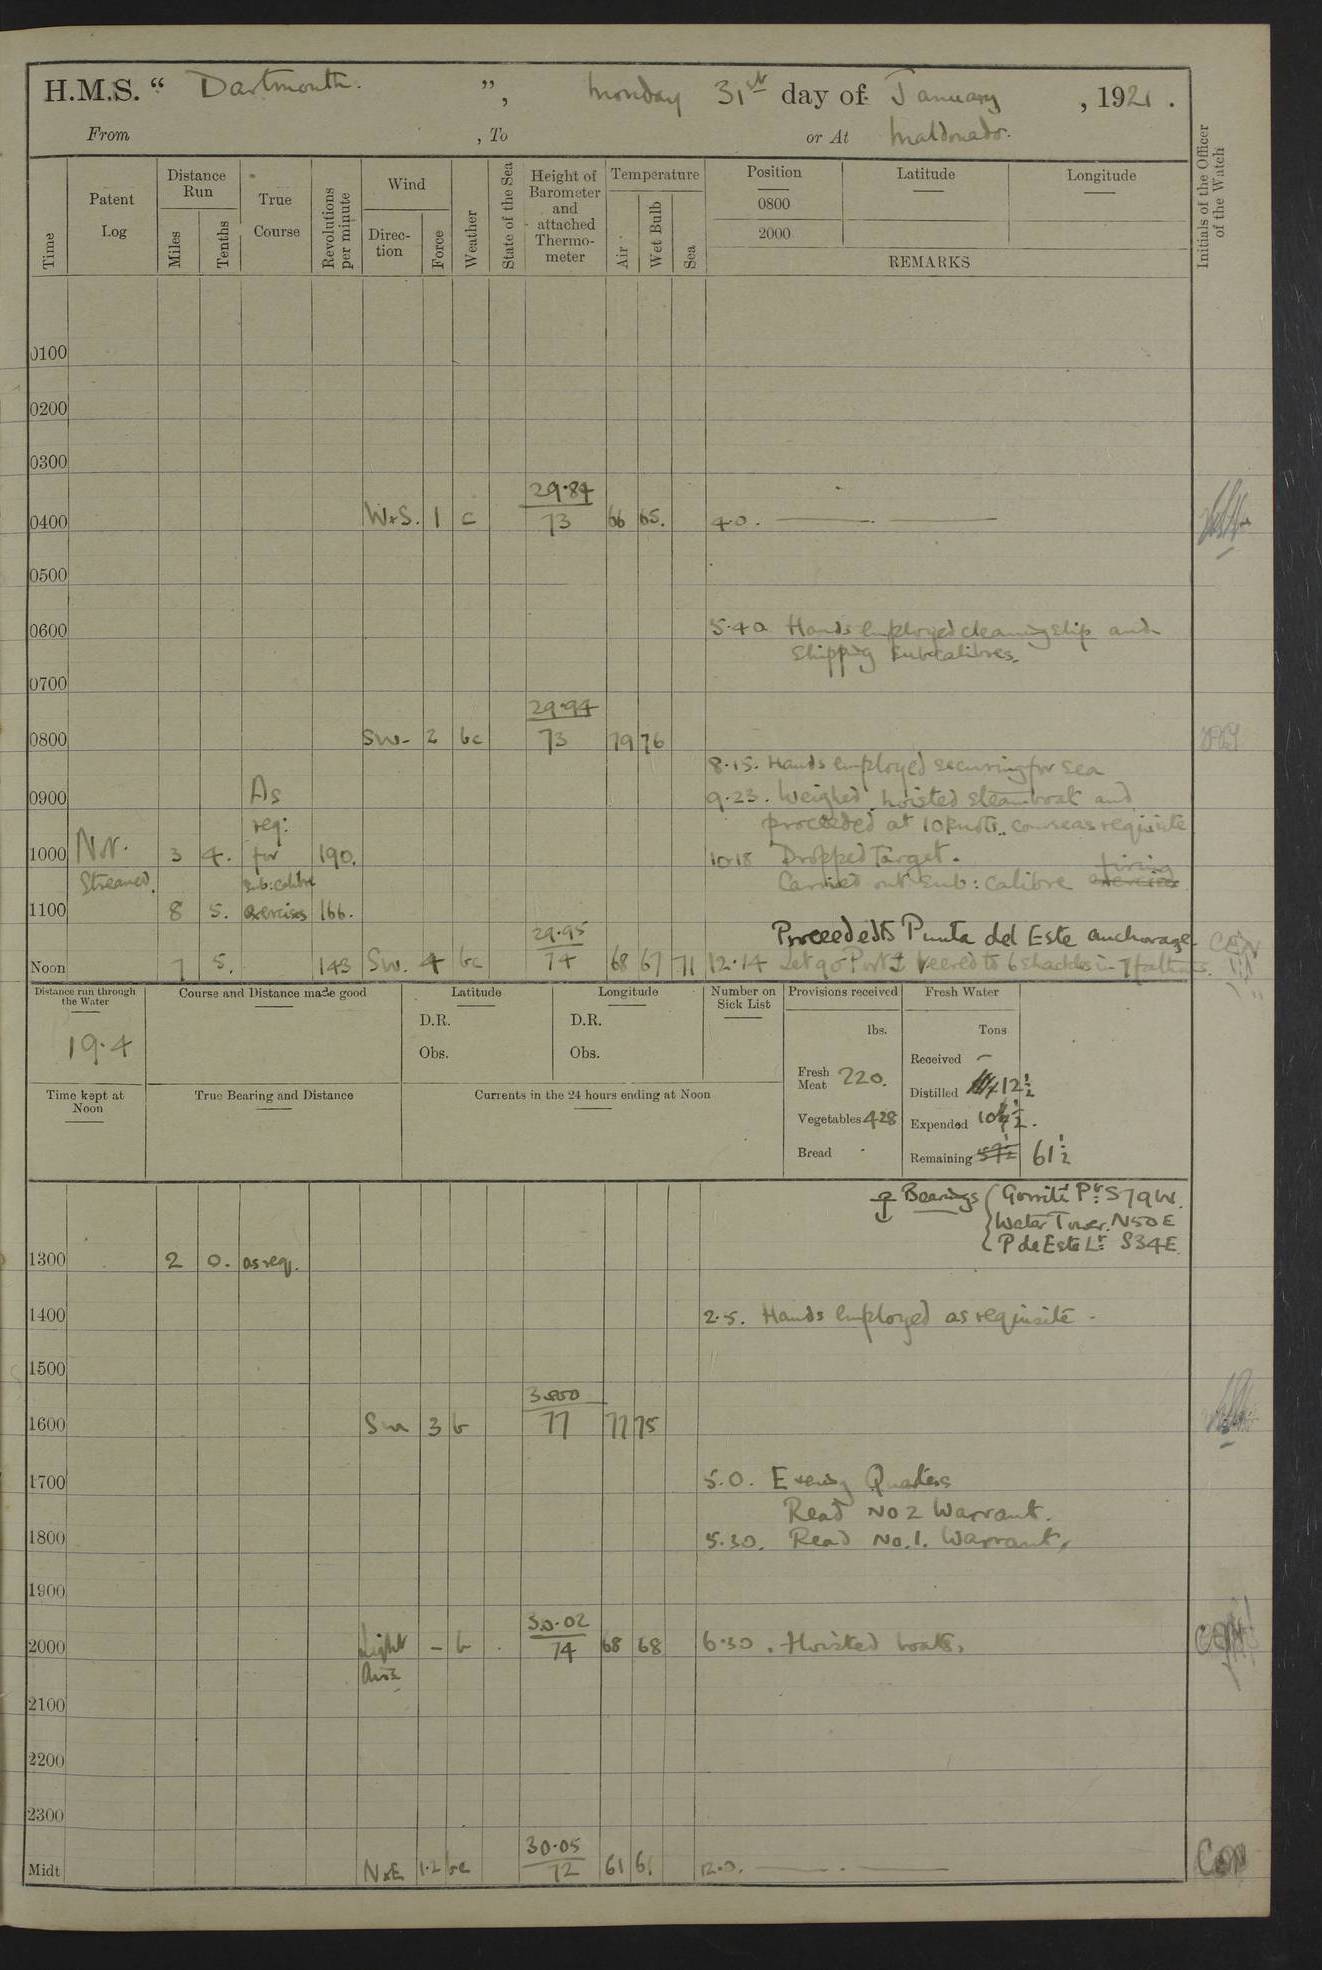 H.M.S. “ Dartmouth. ”, Monday 31st day of January , 1921 .
From , To or At Maldonado.
Time
Patent Log
Distance Run
Miles
Tenths
True Course
Revolutions per minute
Wind
Direc- tion
Force
Weather
State of the Sea
Height of Barometer and attached Thermo- meter
Temperature
Air
Wet Bulb
Sea
Position
0800
2000
Latitude
Longitude
REMARKS
Initials of the Officer of the Watch
0100
0200
0300
29.84
0400 WxS. 1 c 73 66 65. 4.0.
0500
0600 5.40 Hands employed cleaning ship and
shipping sub calibres.
0700
29.94
0800 SW- 2 bc 73 79 76
8.15. Hands employed securing for sea
0900 As 9.23. Weighed, hoisted steamboat and
req: proceeded at 10 knots. course as requisite
1000 Not 3 4. for 190. 10.18 Dropped Target.
Streamed. sub:calibre Carried out Sub: calibre exercises firing
1100 8 5. exercises 166.
29.95 Proceeded to Punta del Este anchorage
Noon 7 5. 143 SW. 4 bc 74 68 67 71 12.14 Let go Port ⚓ Veered to 6 shackles in 7 fathoms.
Distance run through the Water
19.4
Course and Distance made good
Latitude
D.R.
Obs.
Longitude
D.R.
Obs.
Number on Sick List
Provisions received
lbs.
Fresh Meat 220.
Vegetables 428
Bread -
Fresh Water
Tons
Received -
Distilled 12½
Expended 10½.
Remaining 59½ 61½
Time kept at Noon
True Bearing and Distance
Currents in the 24 hours ending at Noon
⚓ Bearings { Gorriti Pt: S79W.
Water Tower. N50E
P de Este Lt: S34E
1300 2 0. as req.
1400 2.5. Hands employed as requisite -
1500
30.00
1600 SW 3 b 77 77 75
1700 5.0. Evening Quarters
Read No 2 Warrant.
1800 5.30. Read No.1. Warrant.
1900
30.02
2000 Light - b 74 68 68 6.30. Hoisted boats.
Airs
2100
2200
2300
30.05
Midt NxE 1.2 bc 72 61 61 12.0.